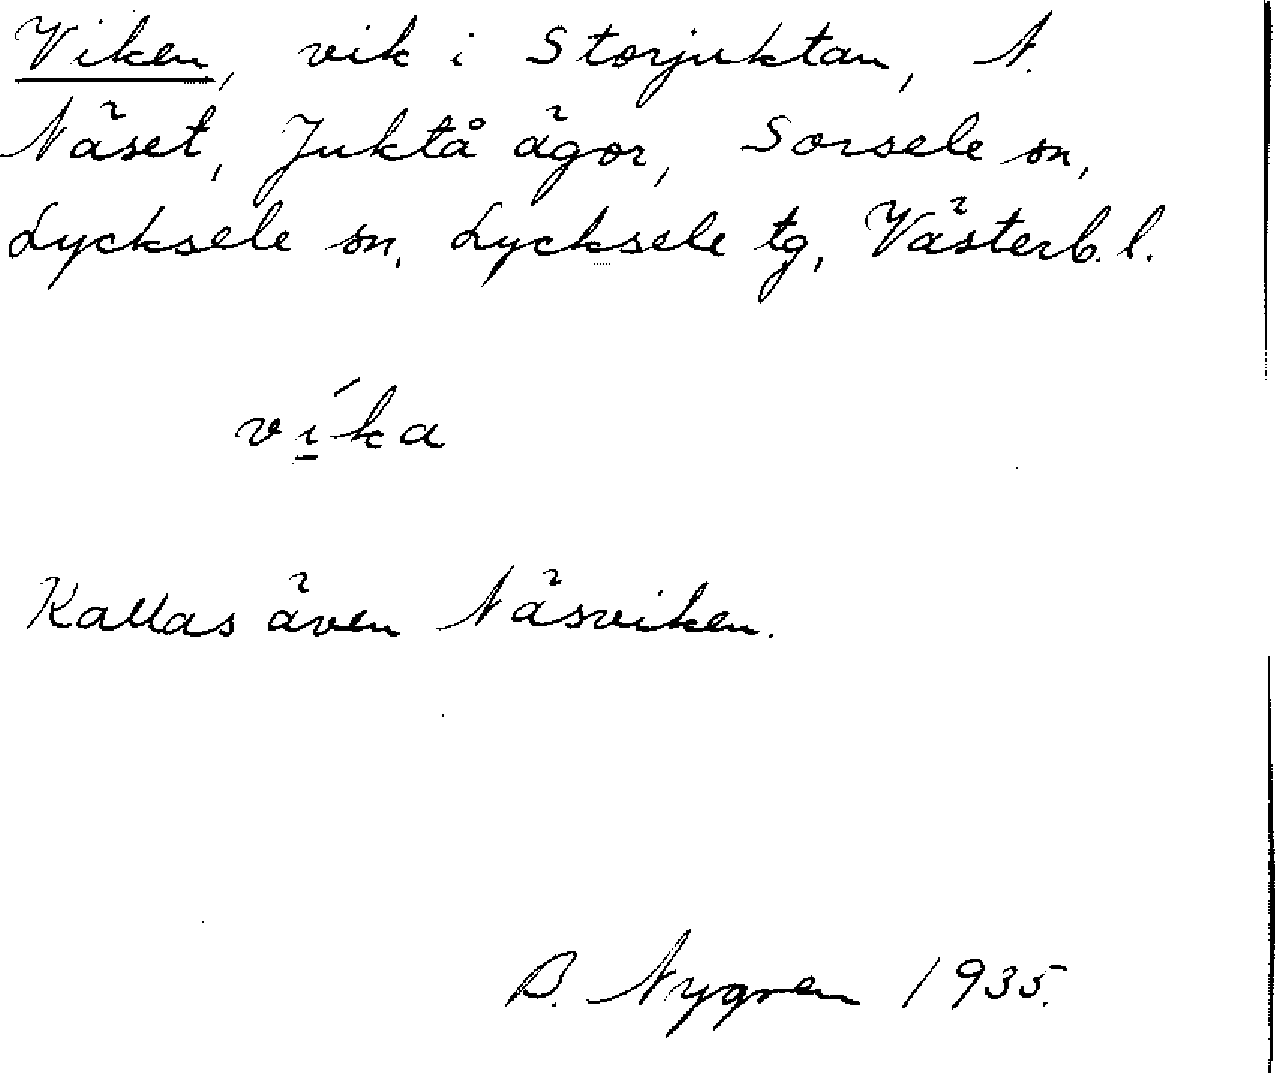 Viken, vik i Storjuktan, N.
Näset, Juktå ägor, Sorsele sn,
Lycksele sn, Lycksele tg, Västerb. l.
ví̱ka
Kallas även Näsviken.
B. Nygren 1935.